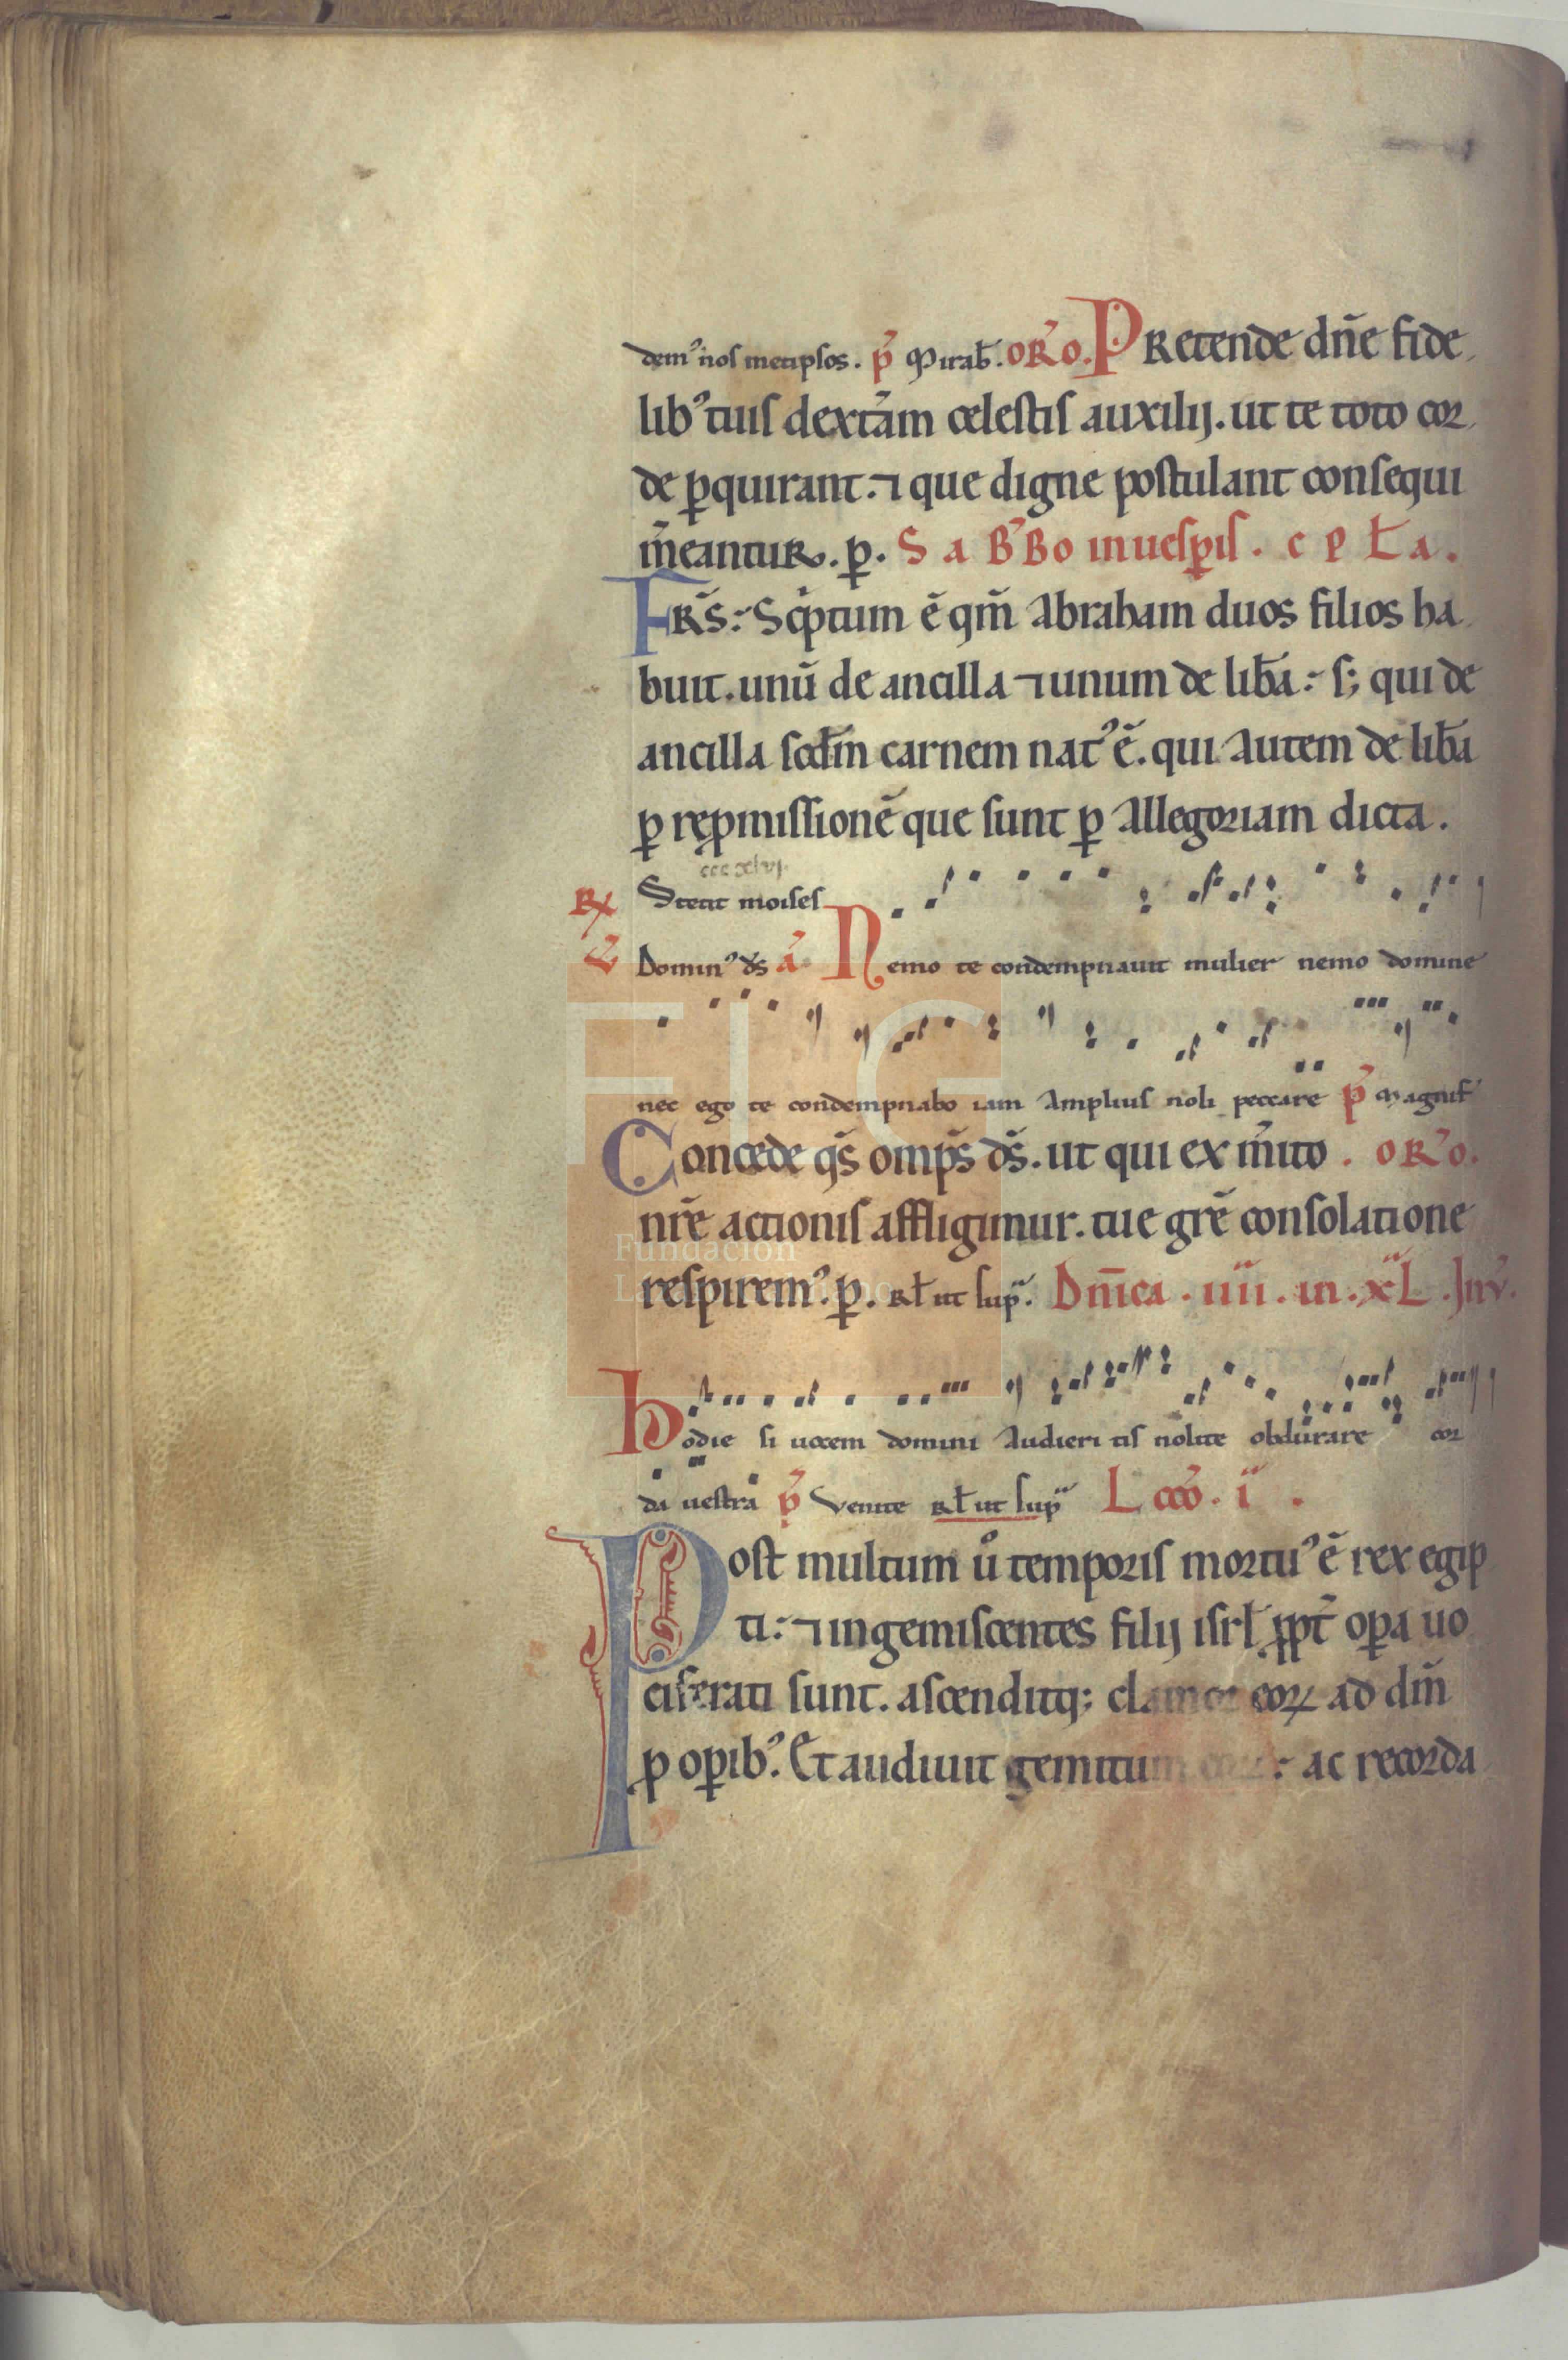 demꝰ nos metipsos. p̃ Mirab̃. oR̃o. PRetende dñe fide
libꝰ tuis dextãm celestis auxilij. ut te toto cor
de ꝑquirant. ⁊ que digne postulant consequi
m̃eantuR. ꝑ. SaB̃Bo in uesꝑis. c p ł a.
FRS̃: Scͥptum ẽ qm̃ Abraham duos filios ha
buit. unũ de ancilla ⁊ unum de lib̃a: s; qui de
ancilla scđm carnem natꝰ ẽ. qui Autem de lib̃a
ꝑ reꝓmissionẽ que sunt ꝑ Allegoriam dicta.
cccxlvj.
R̷ Stetit moises
V̷ Dominꝰ ds̃ ã Nemo te condempnauit mulier nemo domine
nec ego te condempnabo iam Amplius noli peccare p̃ Magnif̃
Concede qs̃ omps̃ ds̃. ut qui ex m̃ito. oR̃o.
nr̃e actionis affligimur. tue gr̃e consolatione
respiremꝰ. ꝑ. Rł ut supᵃ. Dñica. iiii. in. xL. Inṽ.
hodie si uocem domini Audieri tis nolite obdurare cor
da uestra p̃ Venite Rł ut supᵃ Lcc̃o. i.
Post multum ů temporis mortuꝰ ẽ rex egip
ti: ⁊ ingemiscentes filij isrł ꝓpt̃ oꝑa uo
ciferati sunt. ascenditq; clamor eoꝝ ad dm̃
ꝓ oꝑibꝰ. Et audiuit gemitum : ac recorda
FLG
Fundación